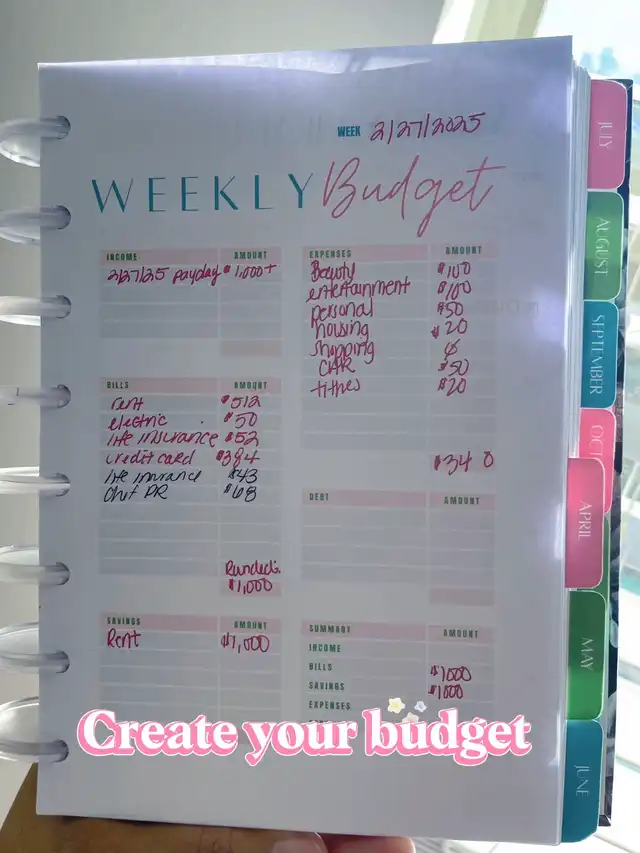 WEEK 2/27/2025
WEEKLY Budget
INCOME AMOUNT
2/27/25 payday $1,000+
BILLS AMOUNT
rent $512
electric $50
life insurance $52
credit card $384
life insurance $43
$68
Rounded:
$1,000
SAVINGS AMOUNT
Rent $1,000
EXPENSES AMOUNT
Beauty $100
entertainment $100
personal $50
housing $20
shopping
CAR $50
tithes $20
$340
DEBT AMOUNT
SUMMARY AMOUNT
INCOME
BILLS $1000
SAVINGS $1000
EXPENSES
Create your budget
JULY
AUGUST
SEPTEMBER
OCT
APRIL
MAY
JUNE